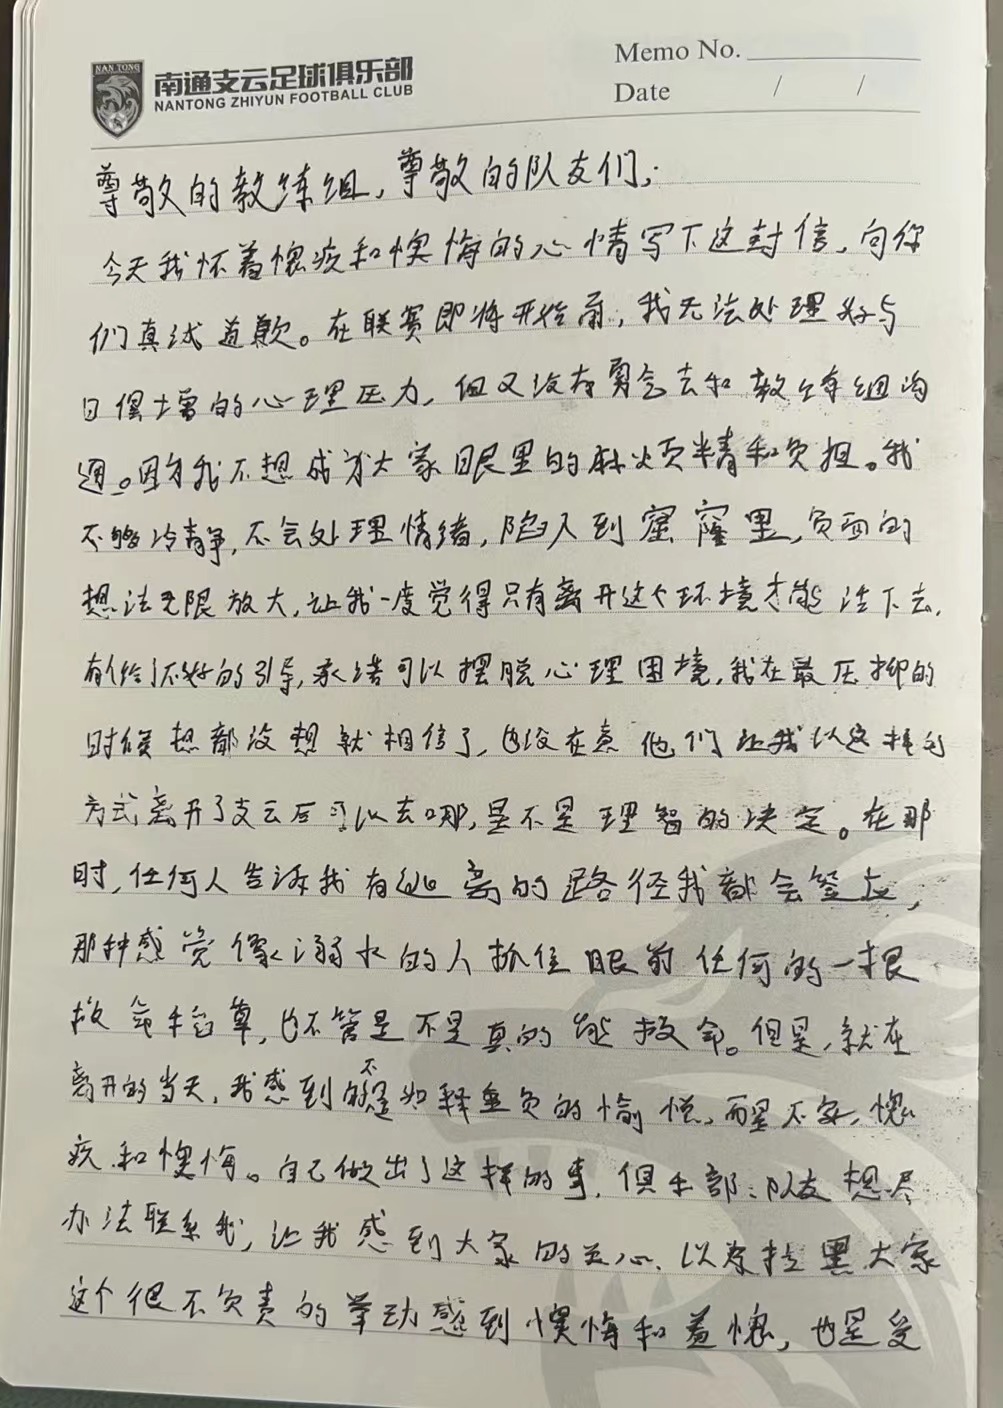 NAN TONG
南通支云足球俱乐部
NANTONG ZHIYUN FOOTBALL CLUB
Memo No.
Date / /
尊敬的教练组，尊敬的队友们；
今天我怀着愧疚和懊悔的心情写下这封信，向你
们真诚道歉。在联赛即将开始前，我无法处理好与
日俱增的心理压力，但又没有勇气去和教练组沟
通。因为我不想成为大家眼里的麻烦精和负担。我
不够冷静，不会处理情绪，陷入到窟窿里，负面的
想法无限放大，让我一度觉得只有离开这个环境才能活下去，
有人给了不好的引导，承诺可以摆脱心理困境，我在最压抑的
时候想都没想就相信了，也没在意他们让我以这样的
方式离开了支云后可以去哪，是不是理智的决定。在那
时，任何人告诉我有逃离的路径我都会答应，
那种感觉像溺水的人抓住眼前任何的一根
救命稻草，也不管是不是真的能救命。但是，就在
离开的当天，我感到的不是如释重负的愉悦，而是不安，愧
疚和懊悔。自己做出了这样的事，俱乐部、队友想尽
办法联系我，让我感到大家的关心、以及拉黑大家
这个很不负责的举动感到懊悔和羞愧，也是受